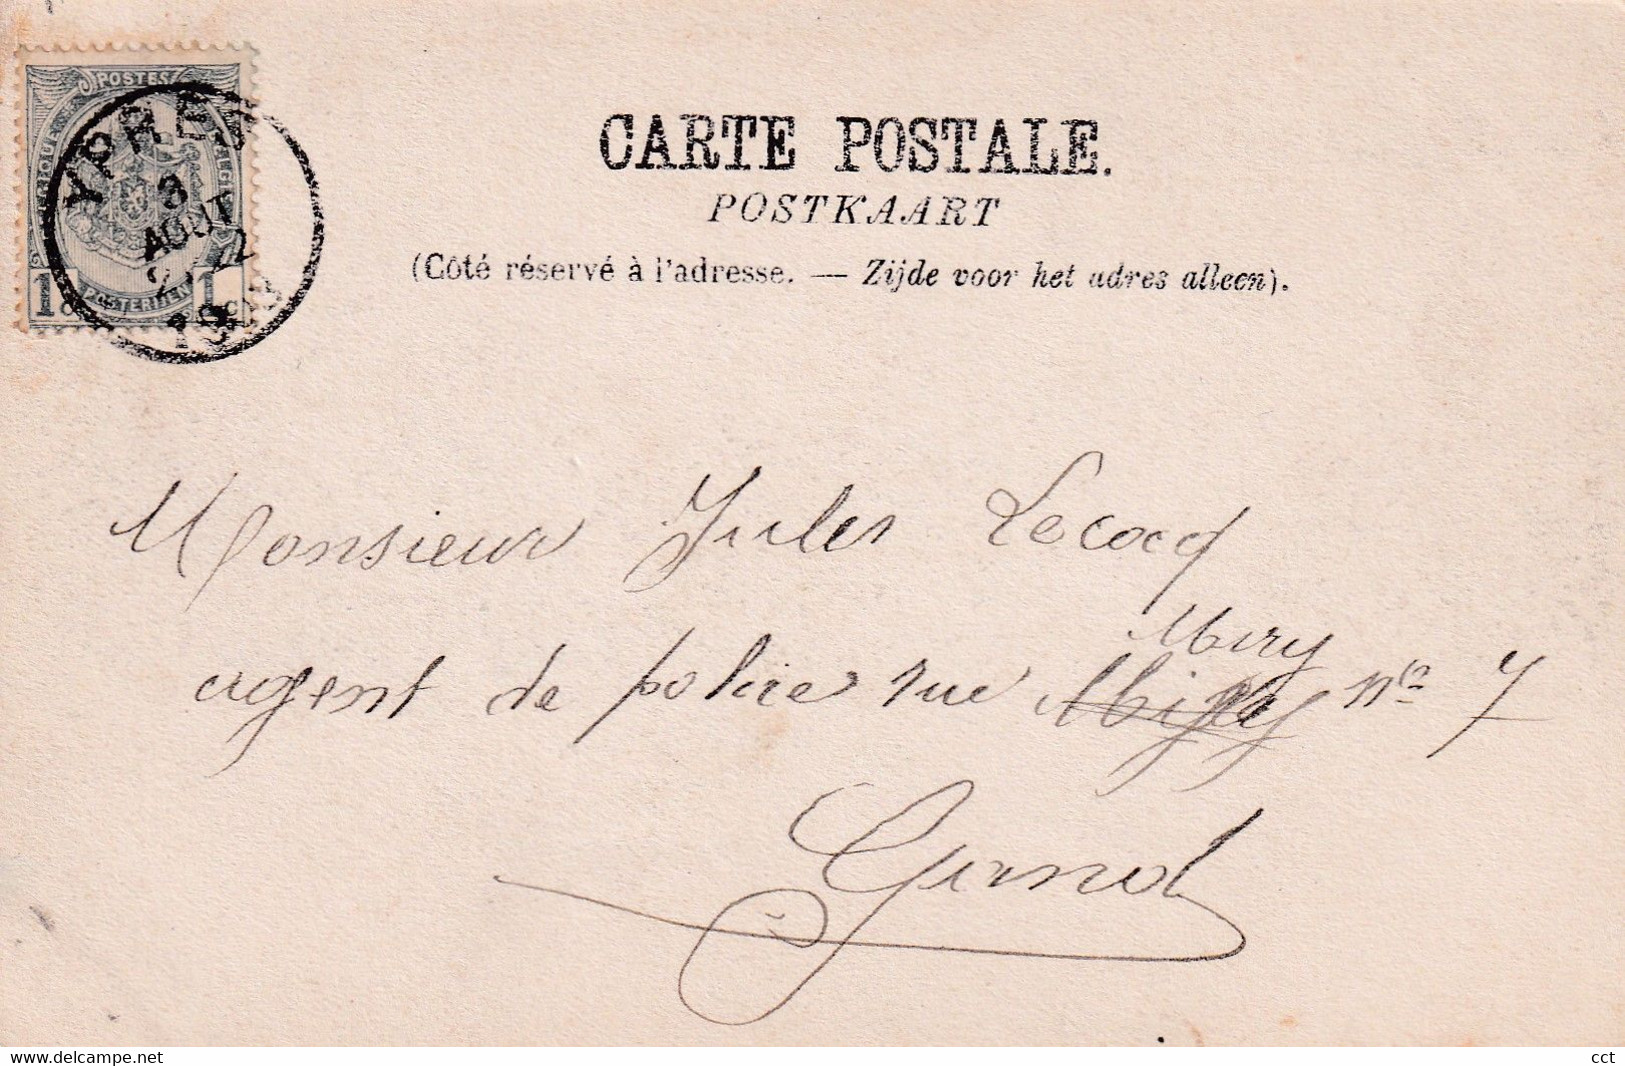 POSTES
YPRES
3
AOUT
1 1
POSTERIJEN
CARTE POSTALE.
POSTKAART
(Côté réservé à l'adresse. — Zijde voor het adres alleen).
Monsieur Jules Lecocq
agent de police rue Miry n° 7
Gand
www.delcampe.net
cct